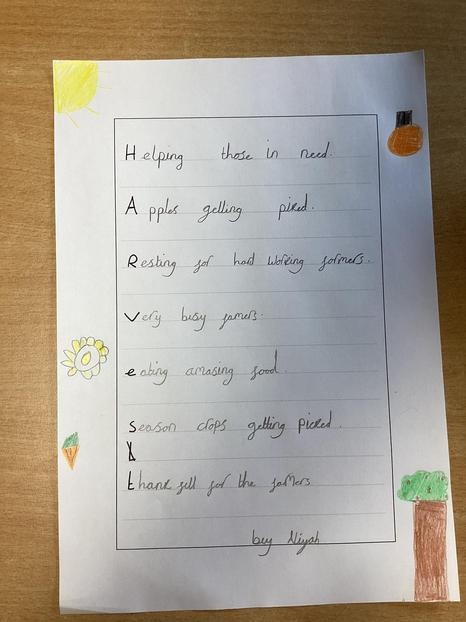 Helping those in need.
Apples getting piked.
Resting for hard working formers.
Very busy famers.
eating amazing food.
Season crops getting picked.
thank full for the farmers
bey Niyah